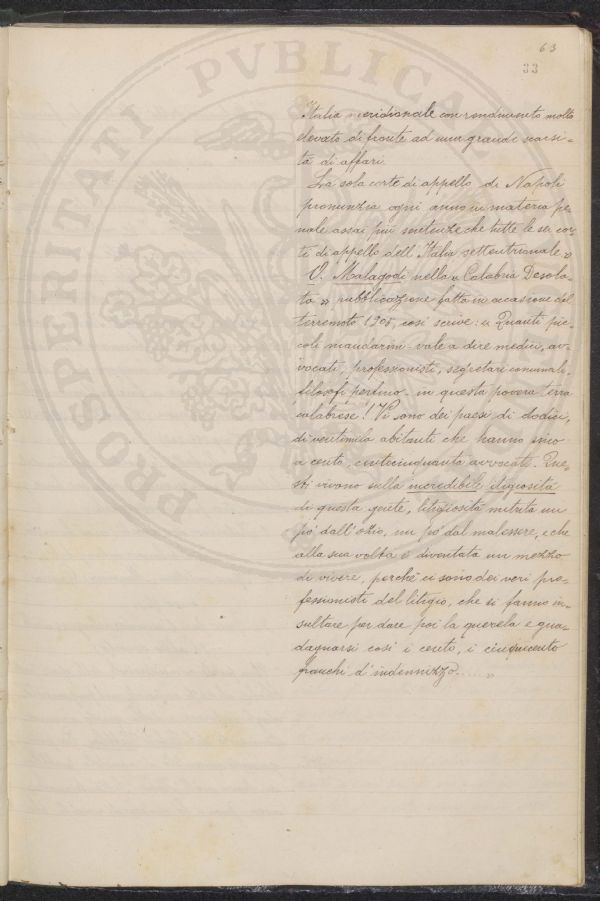 63
33
Italia meridionale con rendimento molto
elevato di fronte ad una grande scarsi-
tà di affari.
La sola corte di appello di Napoli
pronunzia ogni anno in materia pe-
nale assai più sentenze che tutte le se cor-
ti di appello dell'Italia settentrionale »
O. Malagodi nella « Calabria Desola-
ta » pubblicazione fatta in occasione del
terremoto 1905, così scrive: « Quanti pic-
coli mandarini - vale a dire medici, av-
vocati, professionisti, segretari comunali,
filosofi perfino - in questa povera terra
calabrese! Vi sono dei paesi di dodici,
di ventimila abitanti che hanno sino
a cento, centocinquanta avvocati. Que-
sti vivono sulla incredibile litigiosità
di questa gente, litigiosità nutrita un
po' dall'ozio, un po' dal malessere, e che
alla sua volta è diventata un mezzo
di vivere, perchè vi sono dei veri pro-
fessionisti del litigio, che si fanno in-
sultare per dare poi la querela e gua-
dagnarsi così i cento, i cinquecento
franchi d'indennizzo...... »
PROPRIETATI PVBLICAE